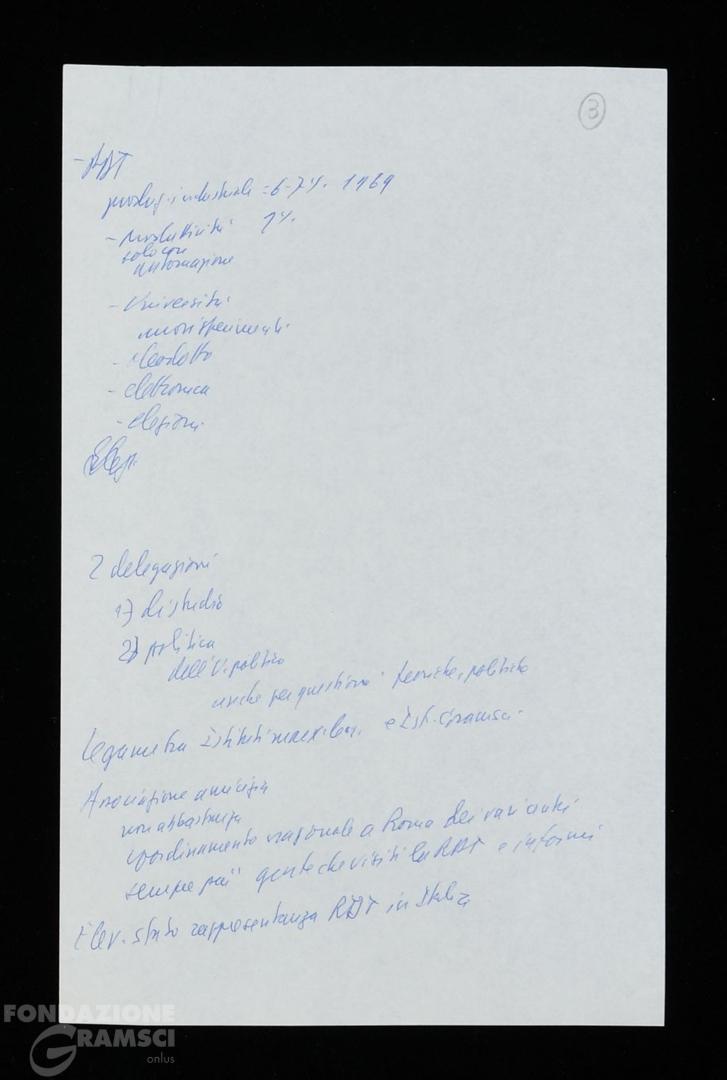 3
- RDT
produz. industriale = 6-7%. 1969
- produttività 7%.
solo con
automazione
- Università
nuovi sperimentali
- oleodotto
- elettronica
- elezioni
2 delegazioni
1) di studio
2) politica
dell'U. politico
anche per questioni teoriche, politiche
Legame tra Istituti marx. len. e Ist. Gramsci
Associazione amicizia
non abbastanza
coordinamento nazionale a Roma dei vari centri
sempre più gente che visiti la RDT e informi
Elev. stato rappresentanza RDT in Italia
FONDAZIONE
GRAMSCI
onlus